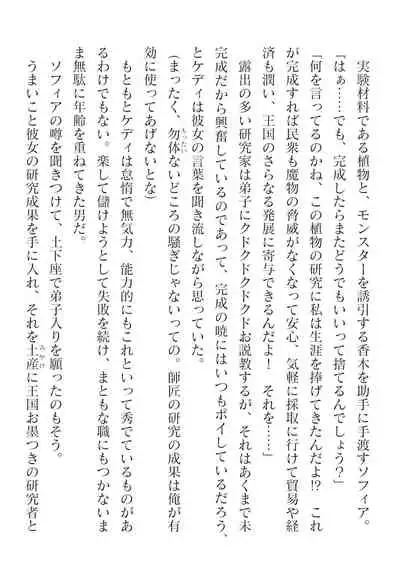 実験材料である植物と、モンスターを誘引する香木を助手に手渡すソフィア。
「はぁ……でも、完成したらまたどうでもいいって捨てるんでしょう？」
「何を言ってるのかね、この植物の研究に私は生涯を捧げてきたんだよ!?　これ
が完成すれば民衆も魔物の脅威がなくなって安心、気軽に採取に行けて貿易や経
済も潤い、王国のさらなる発展に寄与できるんだよ！　それを……」
露出の多い研究家は弟子にクドクドクドクドお説教するが、それはあくまで未
完成だから興奮しているのであって、完成の暁にはいつもポイしているだろう、
とケディは彼女の言葉を聞き流しながら思っていた。
（まったく、勿体ないどころの騒ぎじゃないっての。師匠の研究の成果は俺が有
効に使ってあげないとな）
もともとケディは怠惰で無気力、能力的にもこれといって秀でているものがあ
るわけでもない。楽して儲けようとして失敗を続け、まともな職にもつかないま
ま無駄に年齢を重ねてきた男だ。
ソフィアの噂を聞きつけて、土下座で弟子入りを願ったのもそう。
うまいこと彼女の研究成果を手に入れ、それを土産に王国お墨つきの研究者と